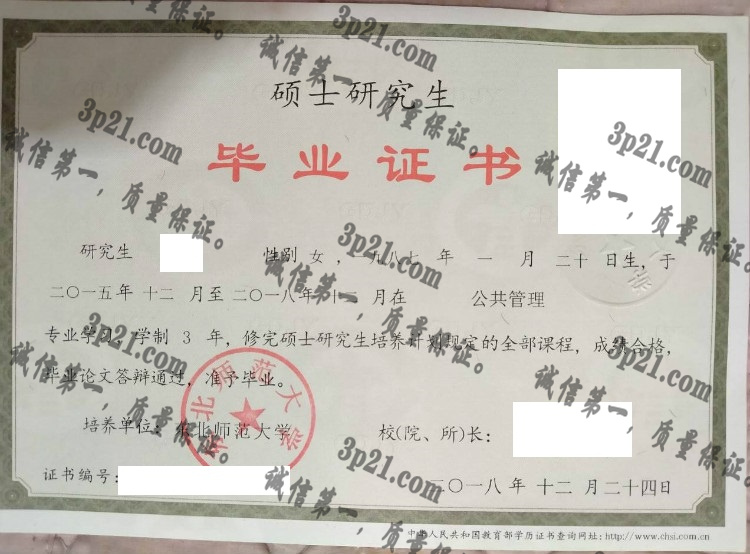 硕士研究生
毕业证书
研究生 性别 女，一九八七 年 一 月 二十 日生，于
二〇一五年 十二 月至 二〇一八年 十二 月在 公共管理
专业学习，学制 3 年，修完硕士研究生培养计划规定的全部课程，成绩合格，
毕业论文答辩通过，准予毕业。
培养单位：东北师范大学 校(院、所)长：
证书编号：
二〇一八 年 十二 月二十四日
中华人民共和国教育部学历证书查询网址:http://www.chsi.com.cn
东北师范大学
3p21.com
诚信第一，质量保证。
3p21.com
诚信第一，质量保证。
3p21.com
诚信第一，质量保证。
3p21.com
诚信第一，质量保证。
3p21.com
诚信第一，质量保证。
3p21.com
诚信第一，质量保证。
3p21.com
诚信第一，质量保证。
3p21.com
诚信第一，质量保证。